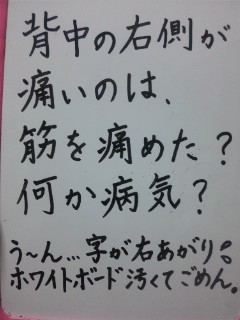 背中の右側が
痛いのは、
筋を痛めた？
何か病気？
う～ん…字が右あがり💦
ホワイトボード汚くてごめん。